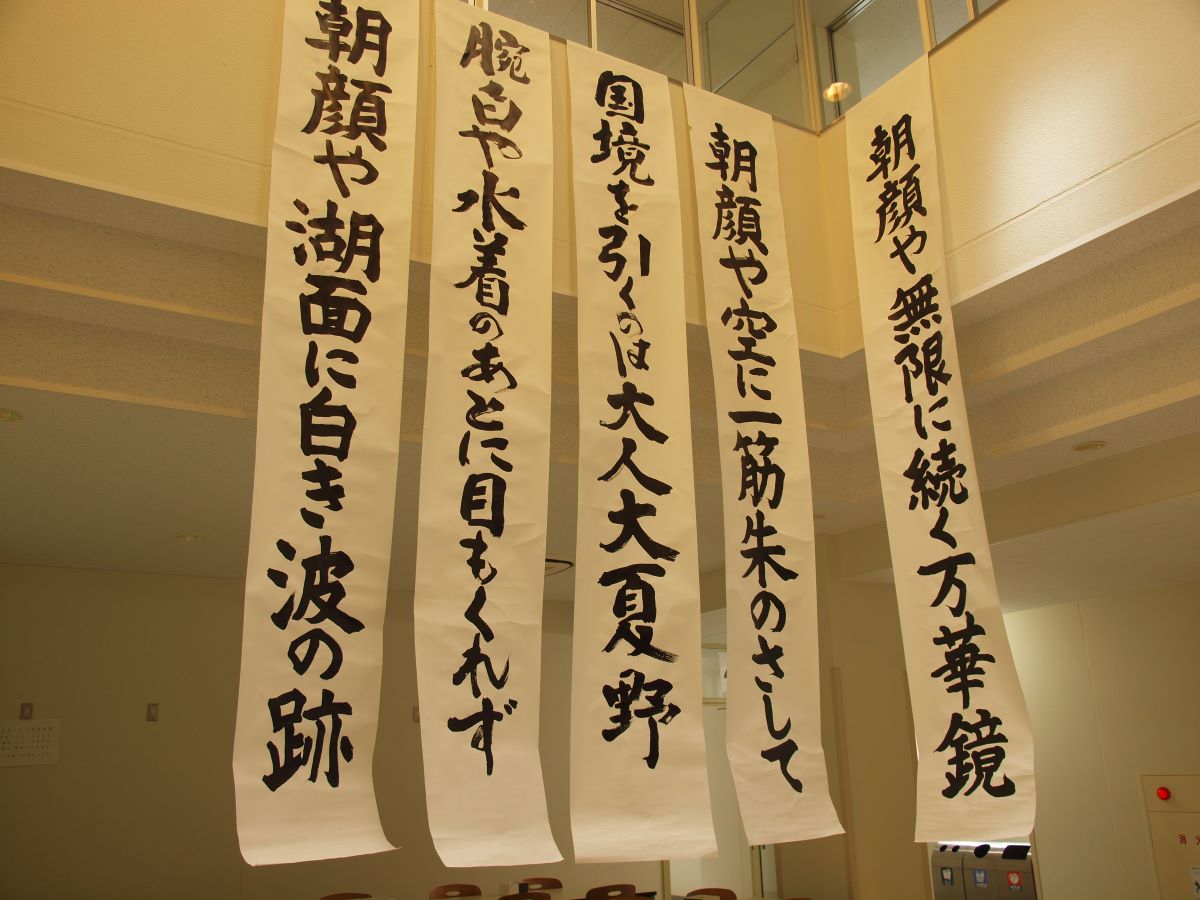 朝顔や無限に続く万華鏡
朝顔や空に一筋朱のさして
国境を引くのは大人大夏野
腕白や水着のあとに目もくれず
朝顔や湖面に白き波の跡
消火